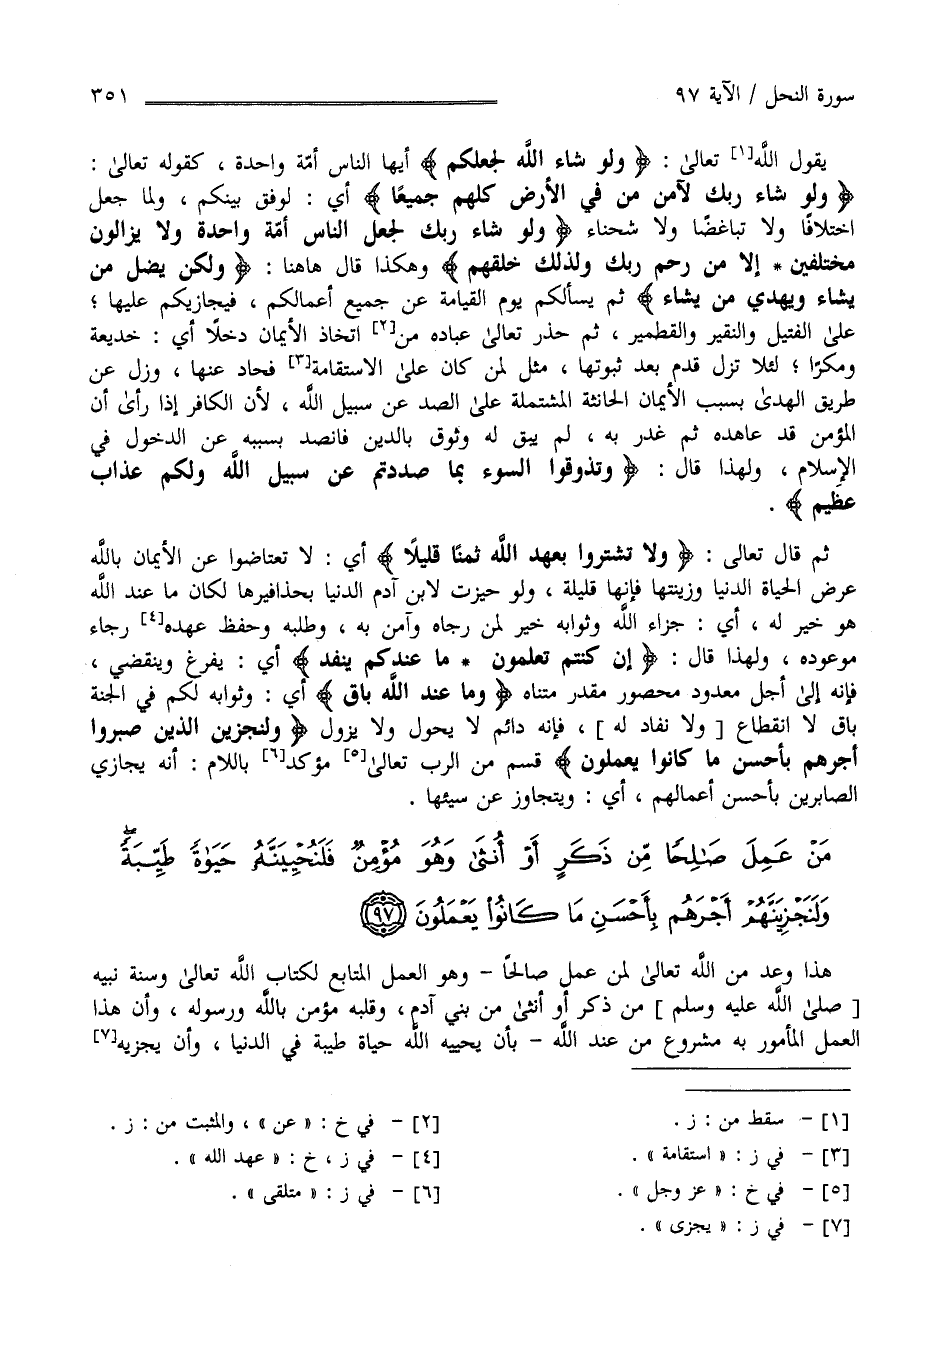 سورة النحل / الآية ٩٧ ٣٥١
يقول اللَّه[١] تعالىٰ : ﴿ ولو شاء اللَّه لجعلكم ﴾ أيها الناس أمّة واحدة ، كقوله تعالىٰ :
﴿ ولو شاء ربك لآمن من في الأرض كلهم جميعًا ﴾ أي : لوفق بينكم ، ولما جعل
اختلافًا ولا تباغضًا ولا شحناء ﴿ ولو شاء ربك لجعل الناس أمّة واحدة ولا يزالون
مختلفين * إلا من رحم ربك ولذلك خلقهم ﴾ وهكذا قال هاهنا : ﴿ ولكن يضل من
يشاء ويهدي من يشاء ﴾ ثم يسألكم يوم القيامة عن جميع أعمالكم ، فيجازيكم عليها ؛
علىٰ الفتيل والنقير والقطمير ، ثم حذر تعالىٰ عباده من[٢] اتخاذ الأيمان دخلًا أي : خديعة
ومكرًا ؛ لئلا تزل قدم بعد ثبوتها ، مثل لمن كان علىٰ الاستقامة[٣] فحاد عنها ، وزل عن
طريق الهدىٰ بسبب الأيمان الحانثة المشتملة علىٰ الصد عن سبيل اللَّه ، لأن الكافر إذا رأىٰ أن
المؤمن قد عاهده ثم غدر به ، لم يبق له وثوق بالدين فانصد بسببه عن الدخول في
الإسلام ، ولهذا قال : ﴿ وتذوقوا السوء بما صددتم عن سبيل اللَّه ولكم عذاب
عظيم ﴾ .
ثم قال تعالى : ﴿ ولا تشتروا بعهد اللَّه ثمنًا قليلًا ﴾ أي : لا تعتاضوا عن الأيمان باللَّه
عرض الحياة الدنيا وزينتها فإنها قليلة ، ولو حيزت لابن آدم الدنيا بحذافيرها لكان ما عند اللَّه
هو خير له ، أي : جزاء اللَّه وثوابه خير لمن رجاه وآمن به ، وطلبه وحفظ عهده[٤] رجاء
موعوده ، ولهذا قال : ﴿ إن كنتم تعلمون * ما عندكم ينفد ﴾ أي : يفرغ وينقضي ،
فإنه إلىٰ أجل معدود محصور مقدر متناه ﴿ وما عند اللَّه باق ﴾ أي : وثوابه لكم في الجنة
باق لا انقطاع [ ولا نفاد له ] ، فإنه دائم لا يحول ولا يزول ﴿ ولنجزين الذين صبروا
أجرهم بأحسن ما كانوا يعملون ﴾ قسم من الرب تعالىٰ[٥] مؤكد[٦] باللام : أنه يجازي
الصابرين بأحسن أعمالهم ، أي : ويتجاوز عن سيئها .
مَنْ عَمِلَ صَـٰلِحًا مِّن ذَكَرٍ أَوْ أُنثَىٰ وَهُوَ مُؤْمِنٌ فَلَنُحْيِيَنَّهُۥ حَيَوٰةً طَيِّبَةً ۖ
وَلَنَجْزِيَنَّهُمْ أَجْرَهُم بِأَحْسَنِ مَا كَانُوا۟ يَعْمَلُونَ ﴿٩٧﴾
هذا وعد من اللَّه تعالىٰ لمن عمل صالحًا - وهو العمل المتابع لكتاب اللَّه تعالىٰ وسنة نبيه
[ صلىٰ اللَّه عليه وسلم ] من ذكر أو أنثىٰ من بني آدم ، وقلبه مؤمن باللَّه ورسوله ، وأن هذا
العمل المأمور به مشروع من عند اللَّه - بأن يحييه اللَّه حياة طيبة في الدنيا ، وأن يجزيه[٧]
[١] - سقط من : ز . [٢] - في خ : « عن » ، والمثبت من : ز .
[٣] - في ز : « استقامة » . [٤] - في ز ، خ : « عهد الله » .
[٥] - في خ : « عز وجل » . [٦] - في ز : « متلقى » .
[٧] - في ز : « يجزى » .